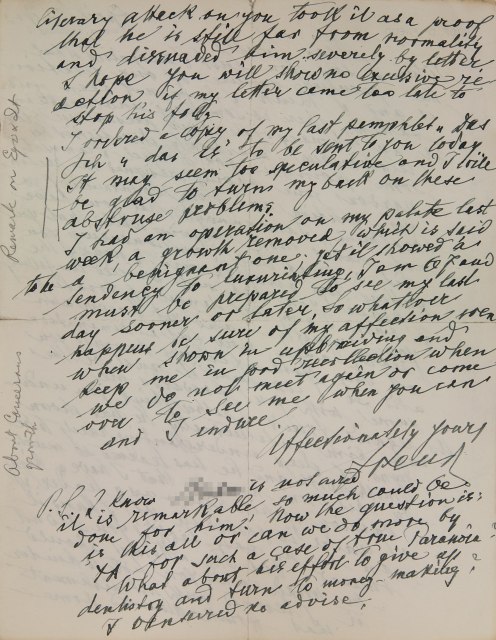 literary attack on you took it as a proof
that he is still far from normality
and dissuaded him severely by letter
I hope you will show no excessive re-
action if my letter came too late to
stop his folly
I ordered a copy of my last pamphlet "Das
Ich u das Es" to be sent to you today.
It may seem too speculative and I will
be glad to turn my back on these
abstruse problems
I had an operation on my palate last
week a growth removed which is said
to be a benignant one, yet it showed a
tendency to I am 67 and
must be prepared to see my last
day sooner or later. So whatever
happens be sure of my affection even
when shown in upbraiding and
keep me in good recollection when
we do not meet again or come
over to see me when you can
and I endure
Affectionately yours
Freud
P.S. I know is not
it is remarkable, so much could be
done for him. Now the question is:
is this all or can we do more by
ΨA for such a case of true Paranoia?
What about his effort to give up
dentistry and turn to money making?
I no advise.
Remark on
About Cancerous
growth